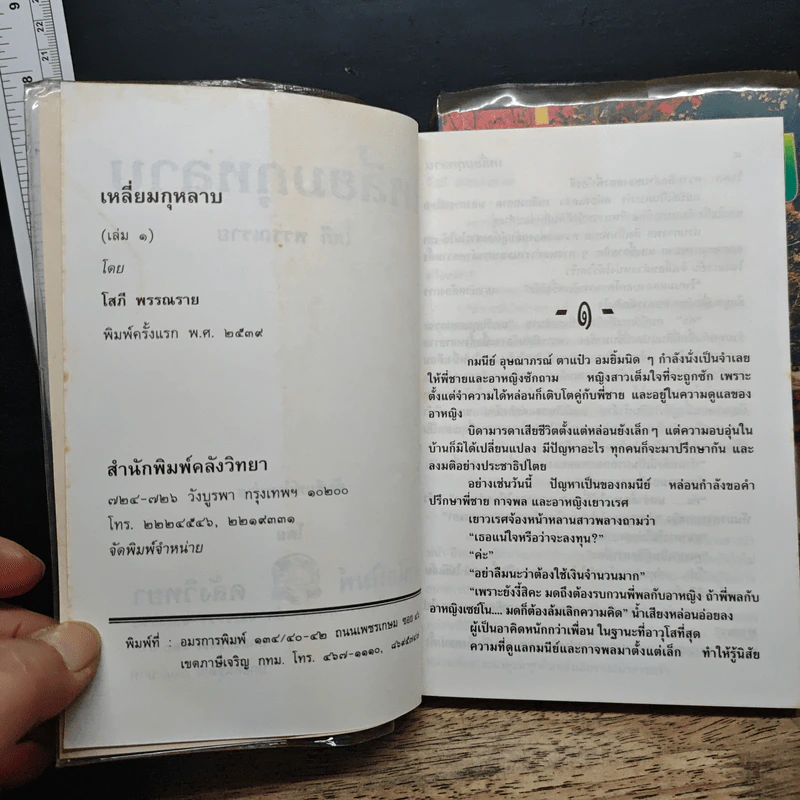 เหลี่ยมกุหลาบ
(เล่ม ๑)
โดย
โสภี พรรณราย
พิมพ์ครั้งแรก พ.ศ. ๒๕๓๙
สำนักพิมพ์คลังวิทยา
๗๒๔-๗๒๖ วังบูรพา กรุงเทพฯ ๑๐๒๐๐
โทร. ๒๒๒๔๕๔๖, ๒๒๑๙๓๓๑
จัดพิมพ์จำหน่าย
พิมพ์ที่ : อมรการพิมพ์ ๑๓๔/๔๐-๔๒ ถนนเพชรเกษม ซอย
เขตภาษีเจริญ กทม. โทร. ๔๖๗-๑๑๑๐,
- ๑ -
กมนีย์ อุษณาภรณ์ ตาแป๋ว อมยิ้มนิด ๆ กำลังนั่งเป็นจำเลย
ให้พี่ชายและอาหญิงซักถาม หญิงสาวเต็มใจที่จะถูกซัก เพราะ
ตั้งแต่จำความได้หล่อนก็เติบโตคู่กับพี่ชาย และอยู่ในความดูแลของ
อาหญิง
บิดามารดาเสียชีวิตตั้งแต่หล่อนยังเล็ก ๆ แต่ความอบอุ่นใน
บ้านก็มิได้เปลี่ยนแปลง มีปัญหาอะไร ทุกคนก็จะมาปรึกษากัน และ
ลงมติอย่างประชาธิปไตย
อย่างเช่นวันนี้ ปัญหาเป็นของกมนีย์ หล่อนกำลังขอคำ
ปรึกษาพี่ชาย กาจพล และอาหญิงเยาวเรศ
เยาวเรศจ้องหน้าหลานสาวพลางถามว่า
“เธอแน่ใจหรือว่าจะลงทุน?”
“ค่ะ”
“อย่าลืมนะว่าต้องใช้เงินจำนวนมาก”
“เพราะยังงี้สิคะ มดถึงต้องรบกวนพี่พลกับอาหญิง ถ้าพี่พลกับ
อาหญิงเซย์โน.... มดก็ต้องล้มเลิกความคิด” น้ำเสียงหล่อนอ่อยลง
ผู้เป็นอาคิดหนักกว่าเพื่อน ในฐานะที่อาวุโสที่สุด
ความที่ดูแลกมนีย์และกาจพลมาตั้งแต่เล็ก ทำให้รู้นิสัย